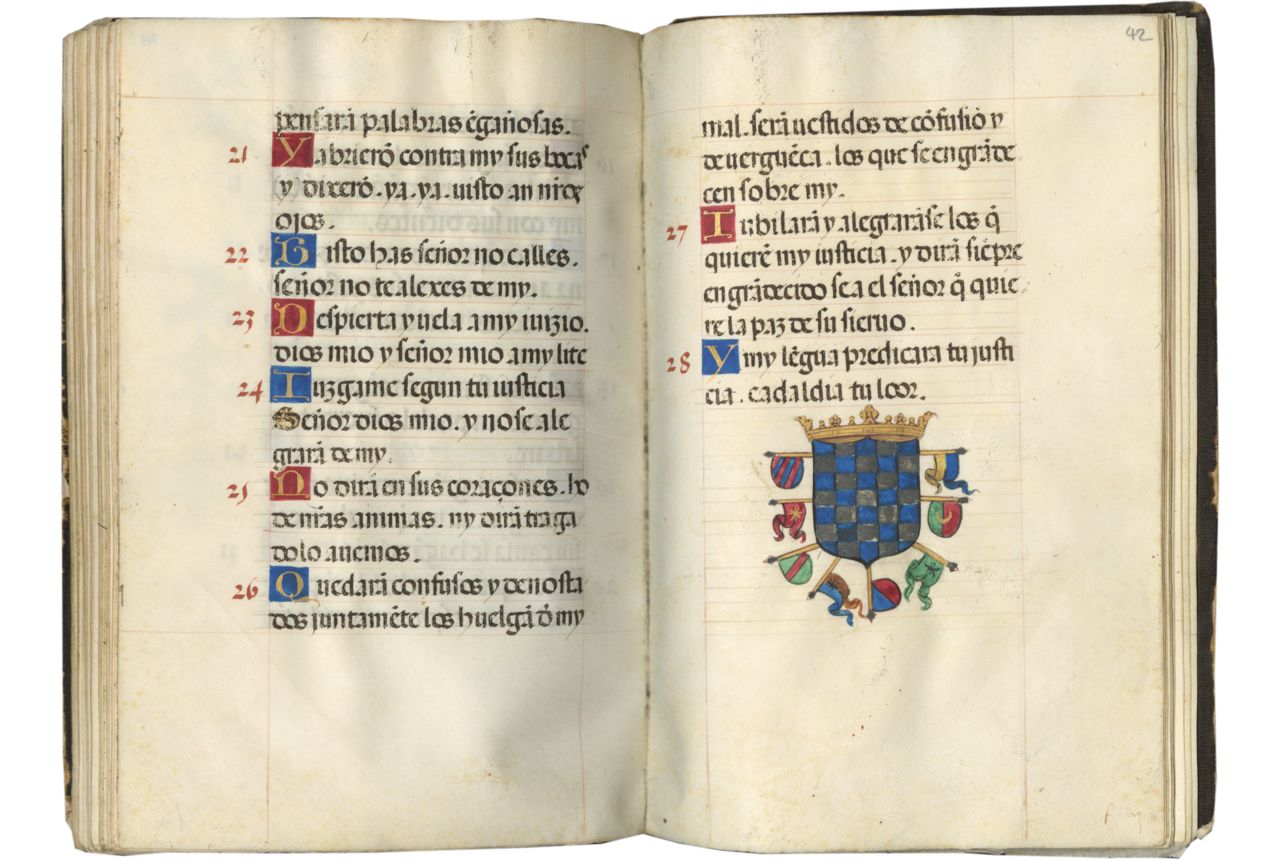 pensarā palabras ēgañosas.
21 Y abrierō contra my sus bocas
y dixerō. ya. ya. uisto an nr̃os
ojos.
22 Uisto has señor no calles.
señor no te alexes de my.
23 Despierta y uela a my iuizio.
dios mio y señor mio a my lite
24 Iuzgame segun tu iusticia
Señor dios mio. y no se ale
grarā de my.
25 No dirā en sus coraçones. ho
de nr̃as animas. ny dirā traga
dolo auemos.
26 Quedarā confusos y denosta
dos juntamēte los huelgā đ my
42
mal. serā uestidos de cōfusiō y
de uerguēca. los que se engrāde
cen sobre my.
27 Iubilarā y alegrarāse los q̄
quierē my iusticia. y dirā siēpre
engrādecido sea el señor q̄ quie
re la paz de su sieruo.
28 Y my lēgua predicara tu justi
cia. cadaldia tu loor.